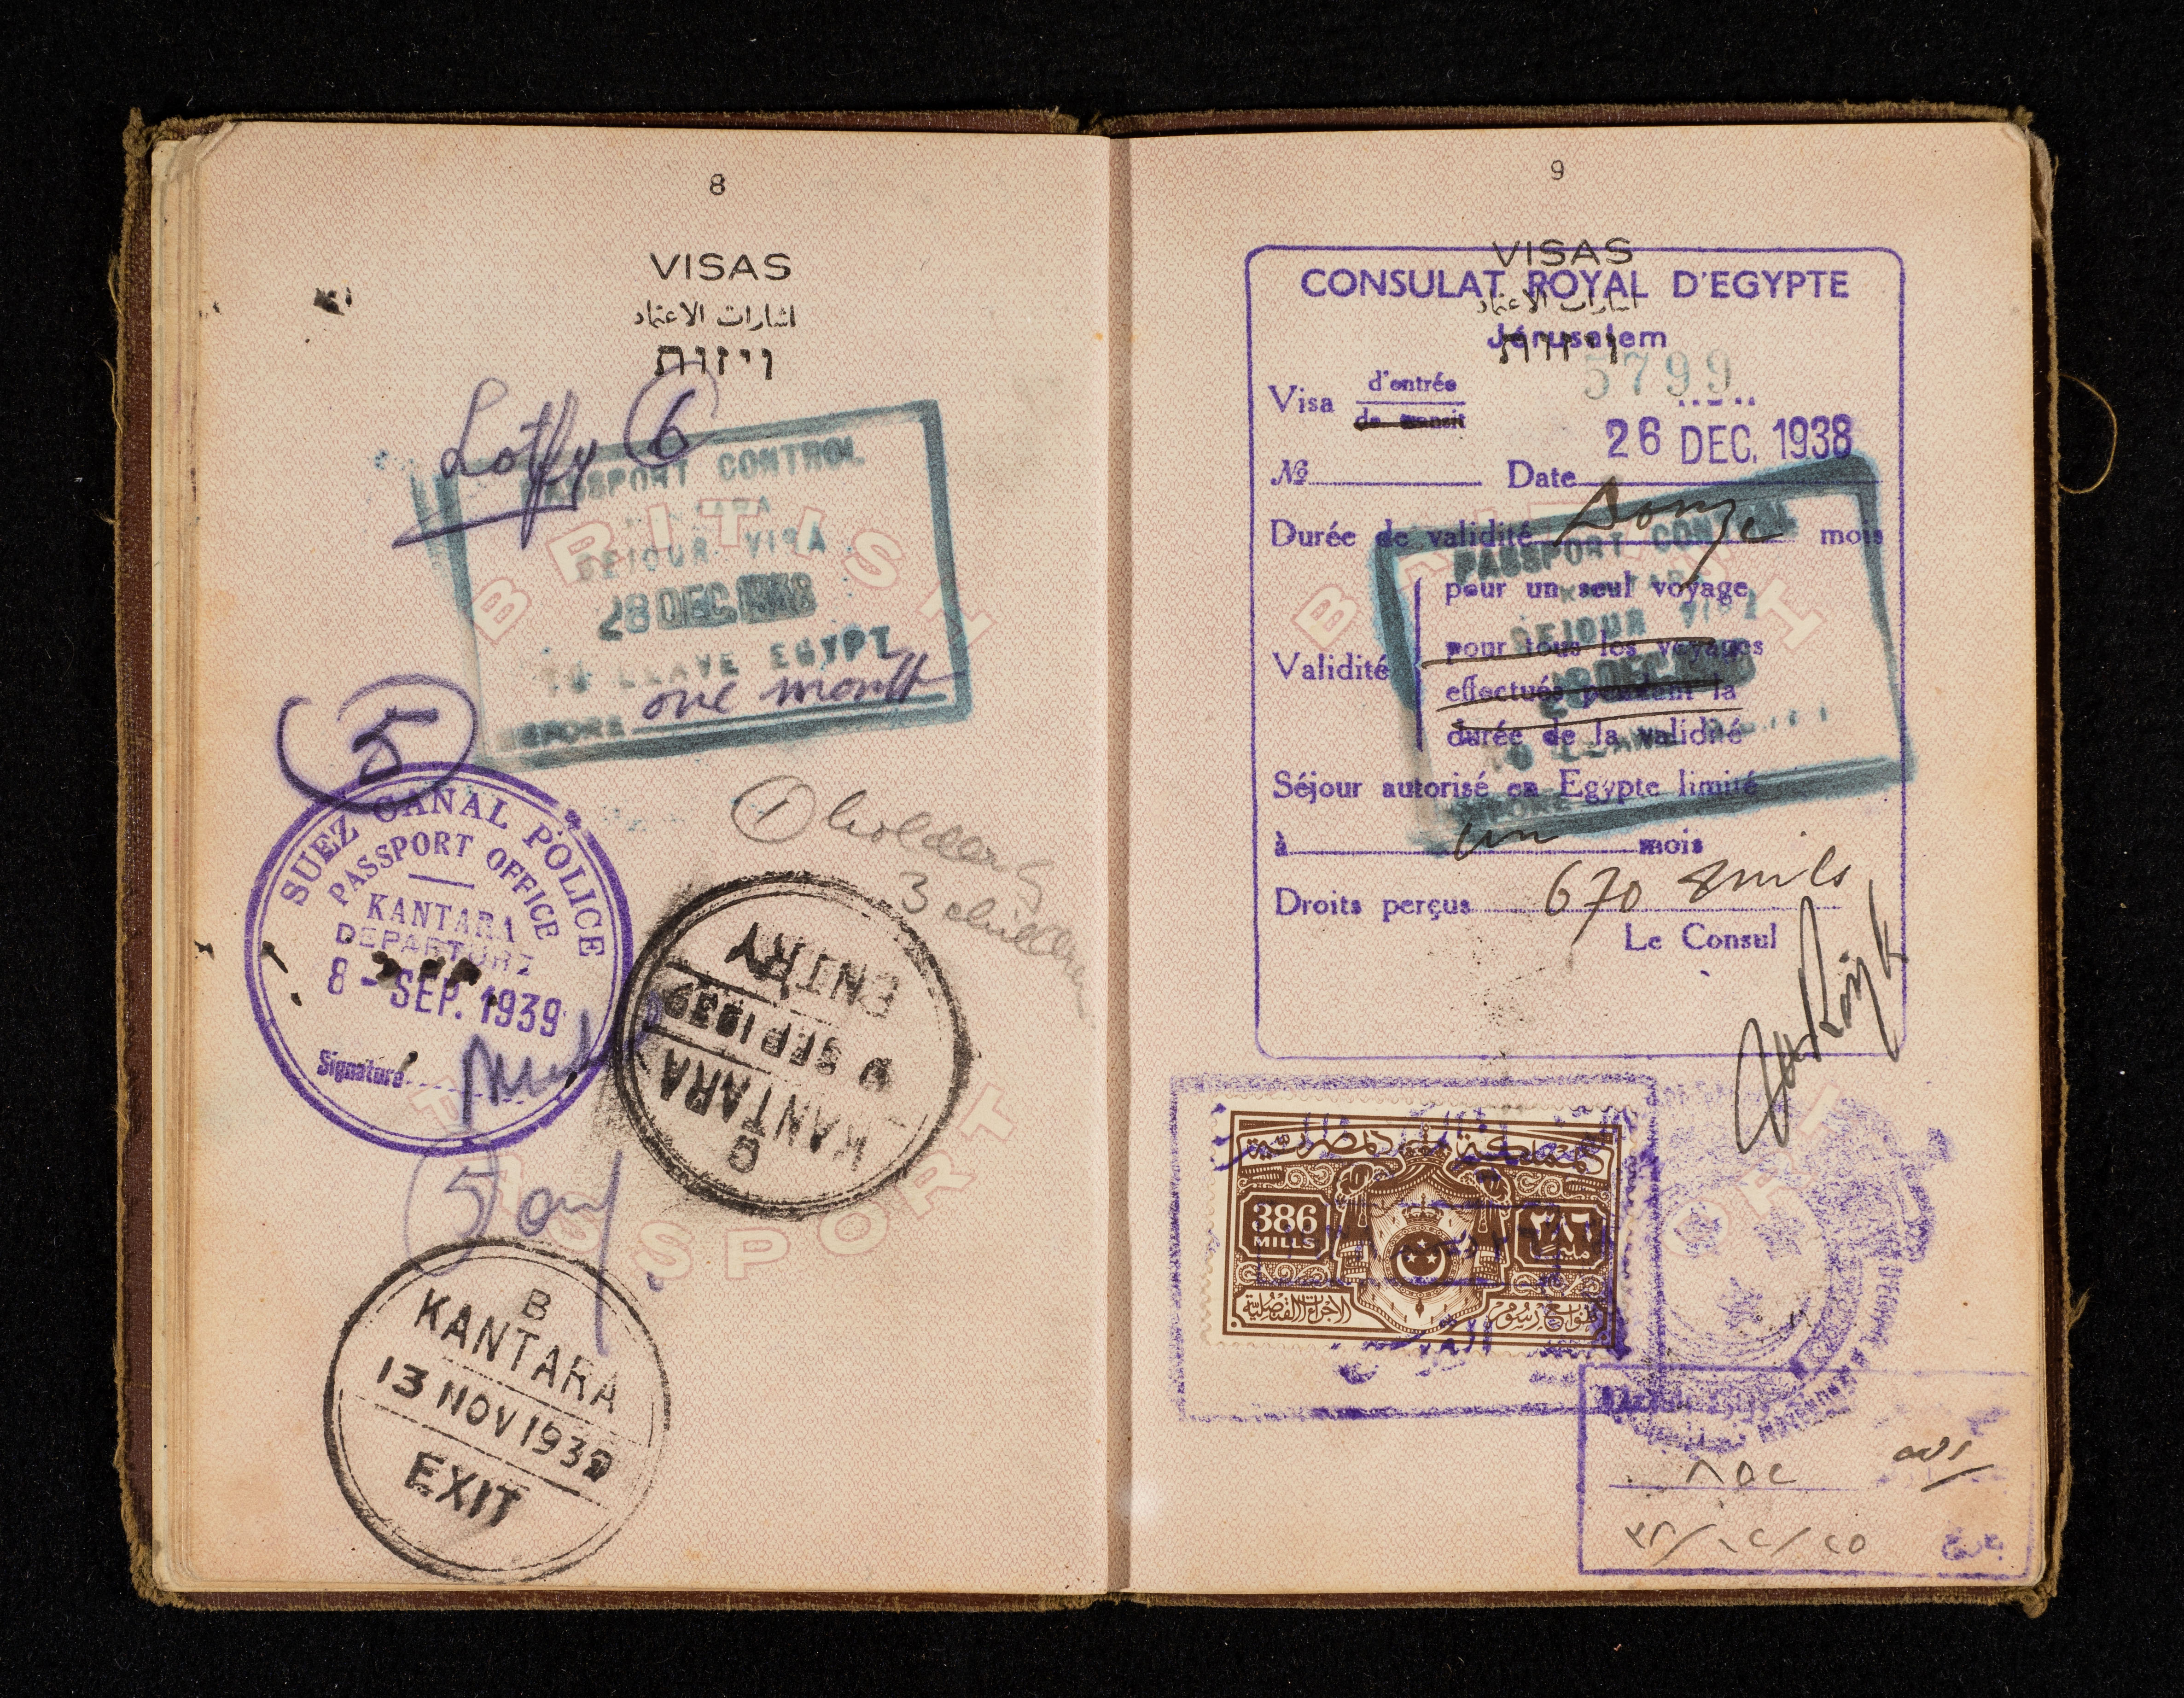 8
VISAS
اشارات الاعتماد
ויזות
Lotfy 6
PASSPORT CONTROL
SEJOUR VISA
28 DEC 1938
TO LEAVE EGYPT
BEFORE one month
5
SUEZ CANAL POLICE
PASSPORT OFFICE
KANTARA
DEPARTURE
8 - SEP. 1939
Signature
1 holder &
3 children
B
KANTARA
9 SEP 1939
ENTRY
5 only
B
KANTARA
13 NOV 1939
EXIT
BRITISH
PASSPORT
9
VISAS
اشارات الاعتماد
ויזות
CONSULAT ROYAL D'EGYPTE
Jérusalem
5799
Visa d'entrée
de transit
26 DEC. 1938
No Date
Durée de validité Douze mois
pour un seul voyage
Validité pour tous les voyages
effectués pendant la
durée de la validité
Séjour autorisé en Egypte limité
à un mois
Droits perçus 670 Mils
Le Consul
PASSPORT CONTROL
KANTARA
SEJOUR VISA
28 DEC
TO LEAVE EGYPT
BEFORE
المملكة المصرية
386
MILLS
٣٨٦
مليم
طوابع رسوم
الاجراءات القنصلية
٨٥٢